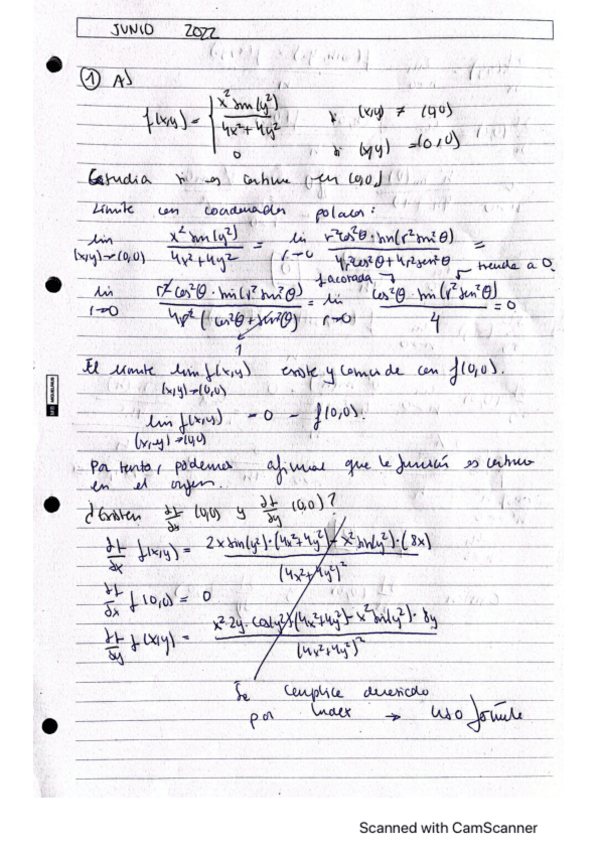 JUNIO 2022
① A)
f(x,y) = { x² sin(y²) / 4x²+4y² si (x,y) ≠ (0,0)
0 si (x,y) = (0,0)
Estudia si es continua en (0,0)
Límite con coordenadas polares:
lim (x,y)→(0,0) x² sin(y²) / 4x²+4y² = lim r→0 r²cos²θ · sin(r²sin²θ) / 4r²cos²θ + 4r²sen²θ =
facotada tiende a 0.
lim r→0 r²cos²θ · sin(r²sin²θ) / 4r² (cos²θ + sen²θ) = lim r→0 cos²θ · sin(r²sen²θ) / 4 = 0
1
El límite lim f(x,y) (x,y)→(0,0) existe y coincide con f(0,0).
lim f(x,y) (x,y)→(0,0) = 0 = f(0,0).
Por tanto, podemos afirmar que la función es continua
en el origen.
¿Existen ∂f/∂x (0,0) y ∂f/∂y (0,0)?
∂f/∂x f(x,y) = 2x sin(y²)·(4x²+4y²) - x² sin(y²)·(8x) / (4x²+4y²)²
∂f/∂x f(0,0) = 0
∂f/∂y f(x,y) = x²·2y·cos(y²)·(4x²+4y²) - x² sin(y²)·8y / (4x²+4y²)²
Se complica demasiado
por → uso
Scanned with CamScanner